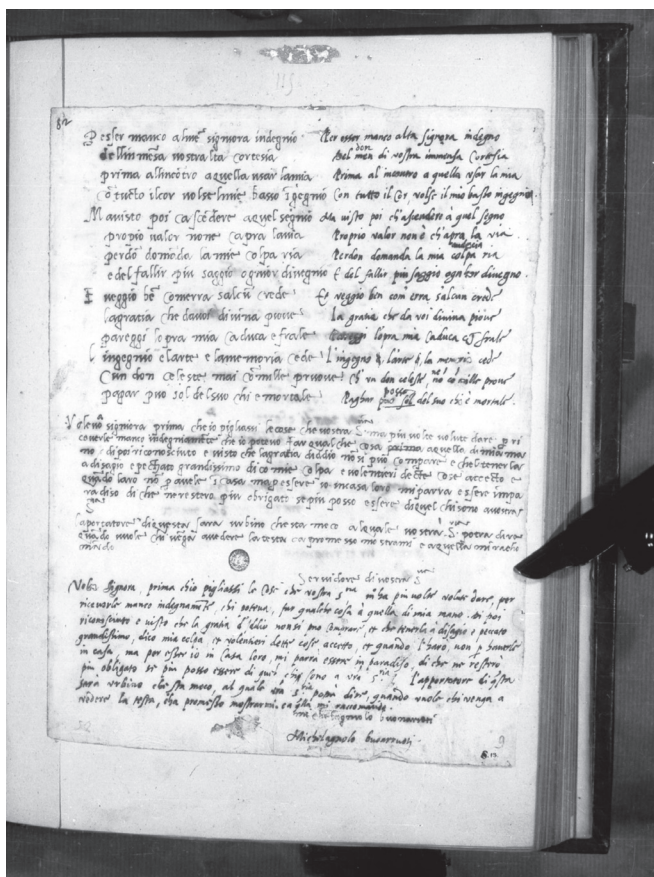 115
82
Per esser manco alta signiora indegnio
dell'inmensa vostra alta cortesia
prima allincōtro aquella usar lamia
cō tucto ilcor volselmie basso īgegnio
Ma visto poi cascēdere aquel segnio
propio valor none capra lavia
perdō domāda la mie colpa ria
e del fallir piu saggio ognior divegnio
E veggio bē comerra salcū crede
lagratia che davoi divina piove
pareggi lopra mia caduca e frale
lingegnio elarte e lamemoria cede
Cun don celeste mai cōmille pruove
pagar puo sol delsuo chi e mortale
Per esser manco alta signora indegno
Del don di vostra immensa Cortesia
Prima al incontro a quella usar la mia
Con tutto il Cor, volse il mio basso ingegno.
Ma visto poi ch'ascendere a quel segno
Proprio valor non è ch'apra la via
Perdon domanda la mia colpa ria
audacia
E del fallir più saggio ogn'hor divegno.
Et veggio ben com'erra s'alcun crede
La gratia che da voi divina piove
Pareggi l'opra mia Caduca et frale
L'ingegno è, l'arte è, la memoria cede
Ch'un don celeste, nè cō mille prove
posso
Paghar può sol del suo chi è mortale.
Volevo signiora prima che io pigliassi le cose che vostra S. ma piu volte volute dare p ri
ceverle manco indegniamēte che io potevo far qual che cosa aquella di mia ma
no di poi riconosciuto e visto che lagratia diddio nō si puo comperare e chel tenerla
adisagio e pechato grandissimo dico mie colpa e volentieri decte cose accecto e
quādo larō nō paverle ī casa ma pessere io incasa loro mi parra essere impa
radiso di che ne restero piu obrigato se piu posso essere di quel chi sono avostra
S.
laportatore di questa sara urbino che sta meco alquale vostra S. potra dire
quādo vuole chi vēga avedere latesta capromesso mostrarmi e aquella mi racho
mādo
Servidore di vostra S.
Volea Signora, prima ch'io pigliassi le cose che vostra S. m'ha più volte volute dare, per
riceverle manco indegnamēte, ch'i poteva, far qualche cosa à quella di mia mano. Di poi
riconosciuto e visto che la gratia d'Iddio non si può comprare, et che tenerla a disagio è peccato
grandissimo, dico mia colpa, et volentieri dette cose accetto, et quando l'harò, non p haverle
in casa, ma per esser io in casa loro, mi parrà essere in paradiso, di che ne resterò
più obligato se più posso essere di quel ch'i sono a vra S. L'apportatore di q̄sta
sarà urbino che sta meco, al quale vra S. potrà dire, quando vuole ch'i venga a
vedere la testa, c'ha promesso mostrarmi.
Michelagnolo buonarroti
Michelagnolo buonarroti.
9